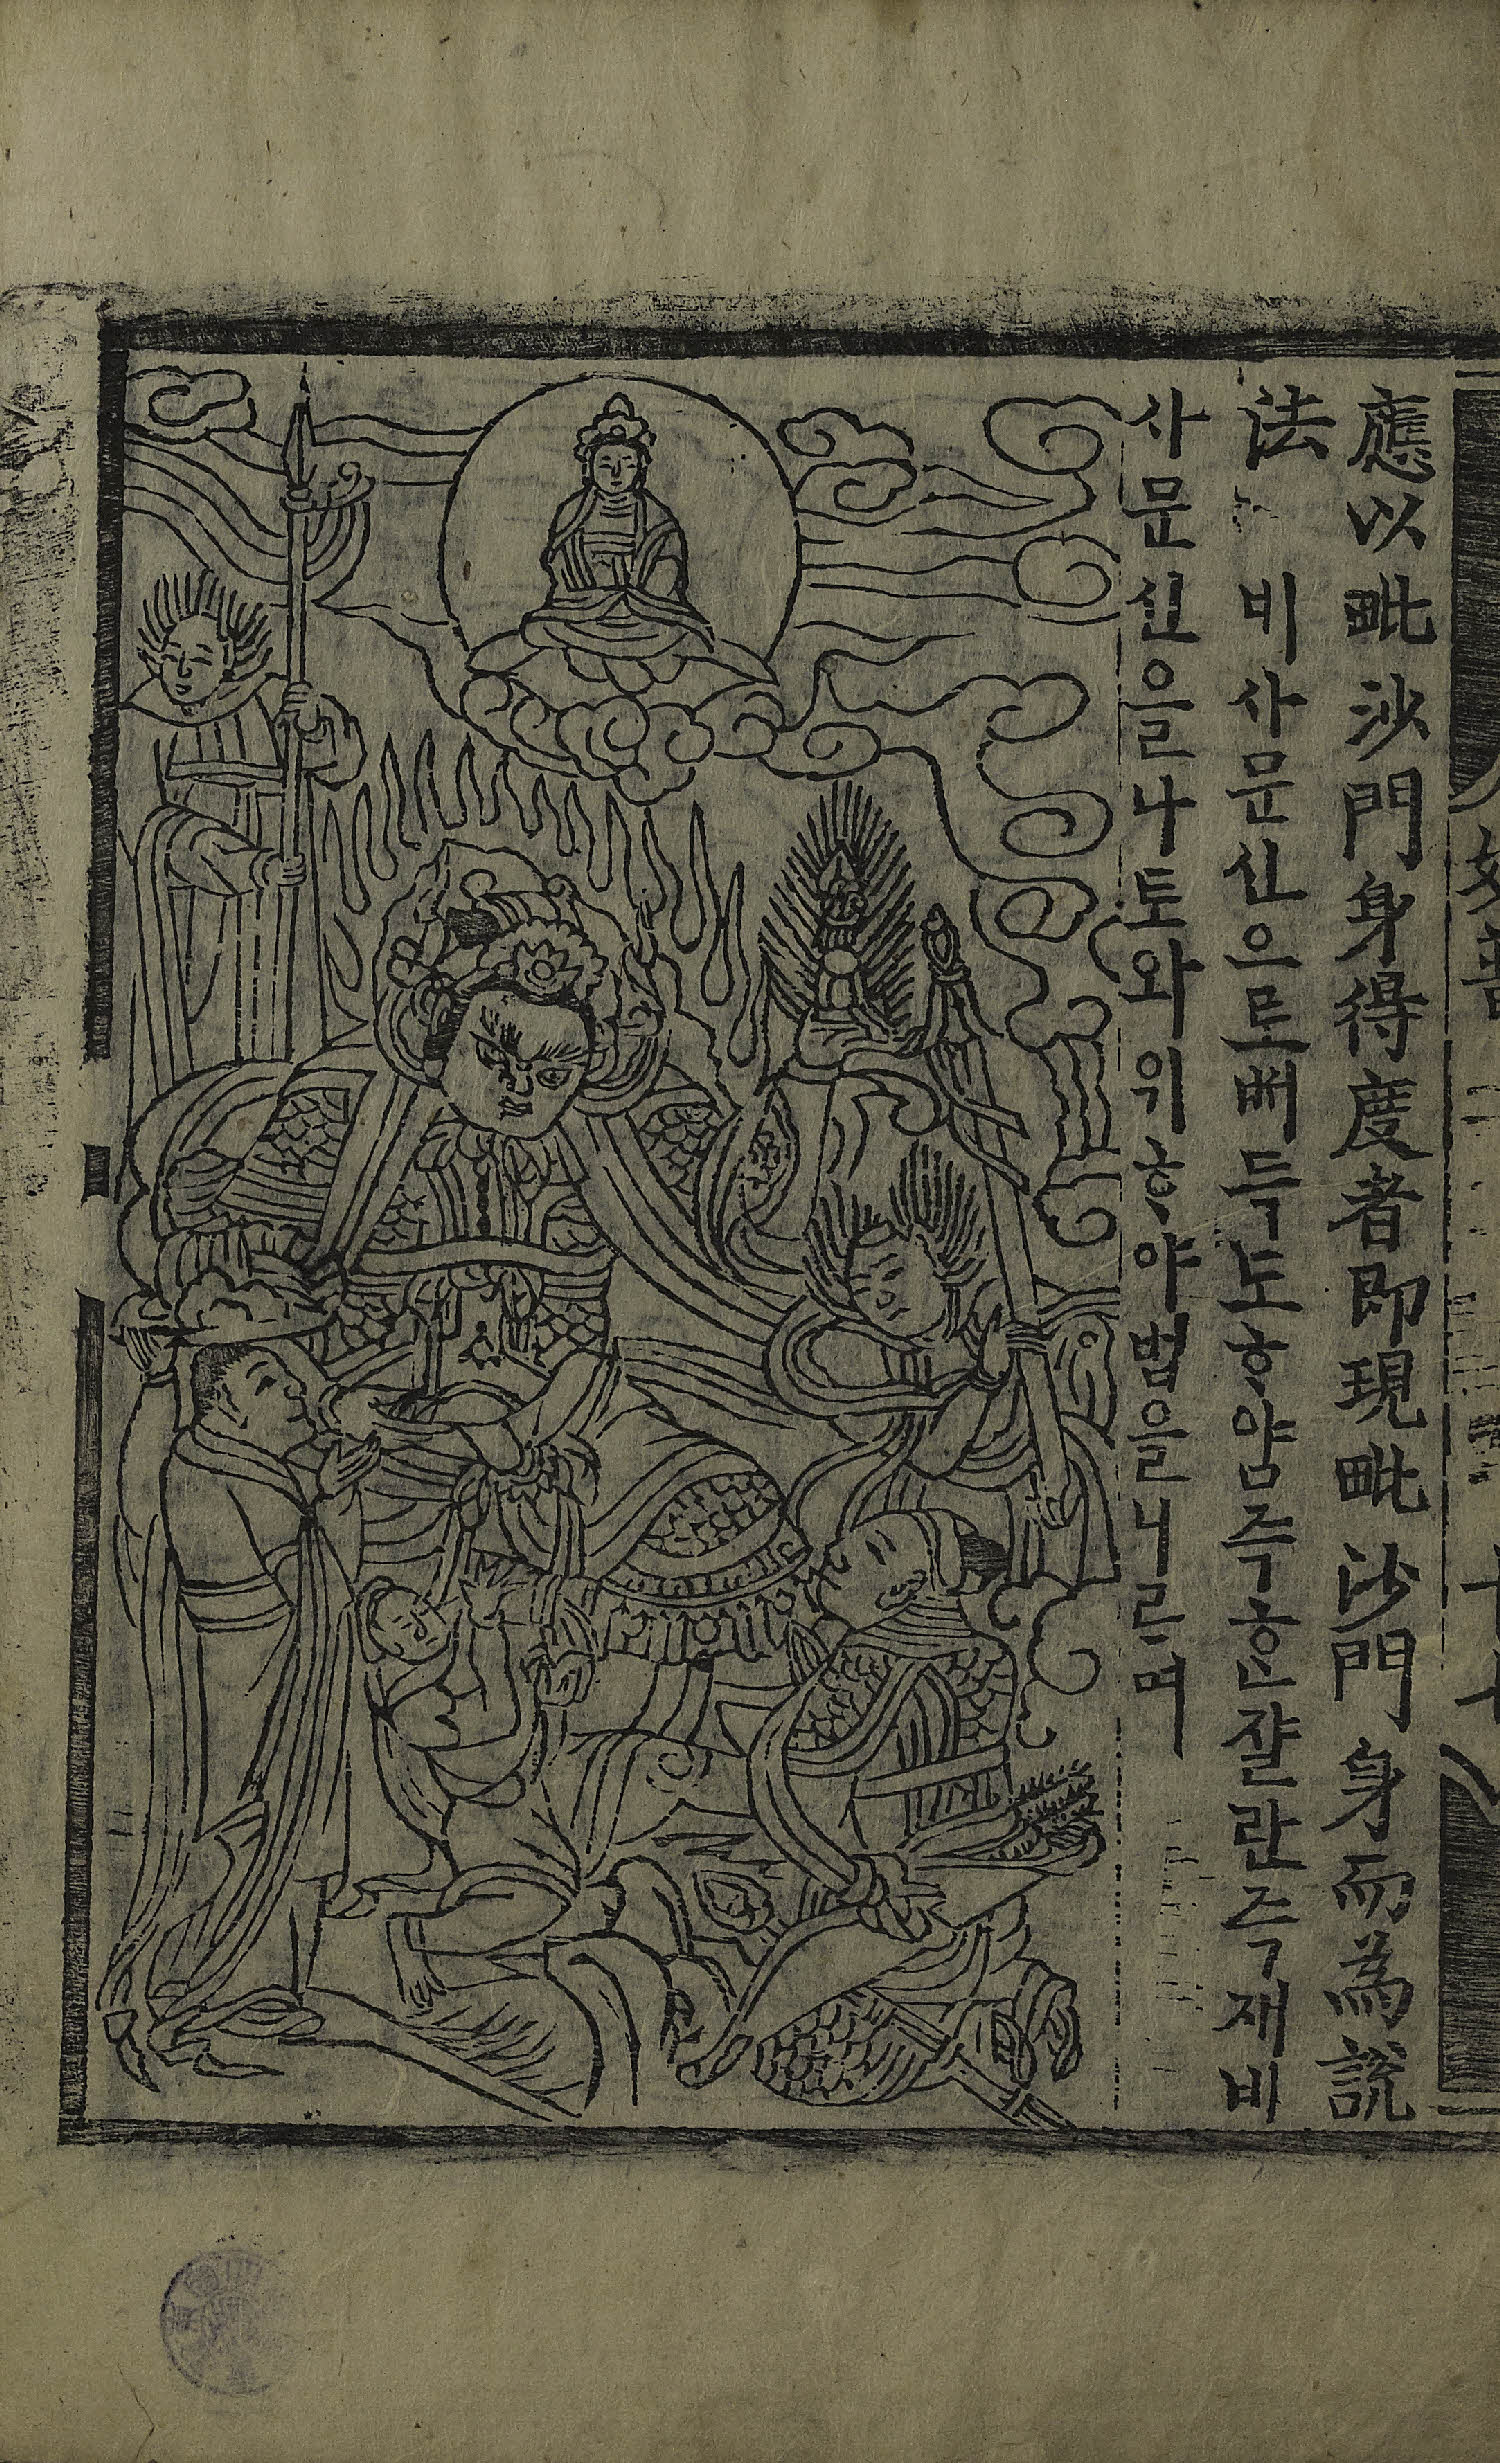 應以毗沙門身得度者即現毗沙門身而為說
法 비사문신으로ᄡᅥ득도ᄒᆞ얌즉ᄒᆞᆫ쟐란즉재비
사문신을나토와위ᄒᆞ야법을니르며